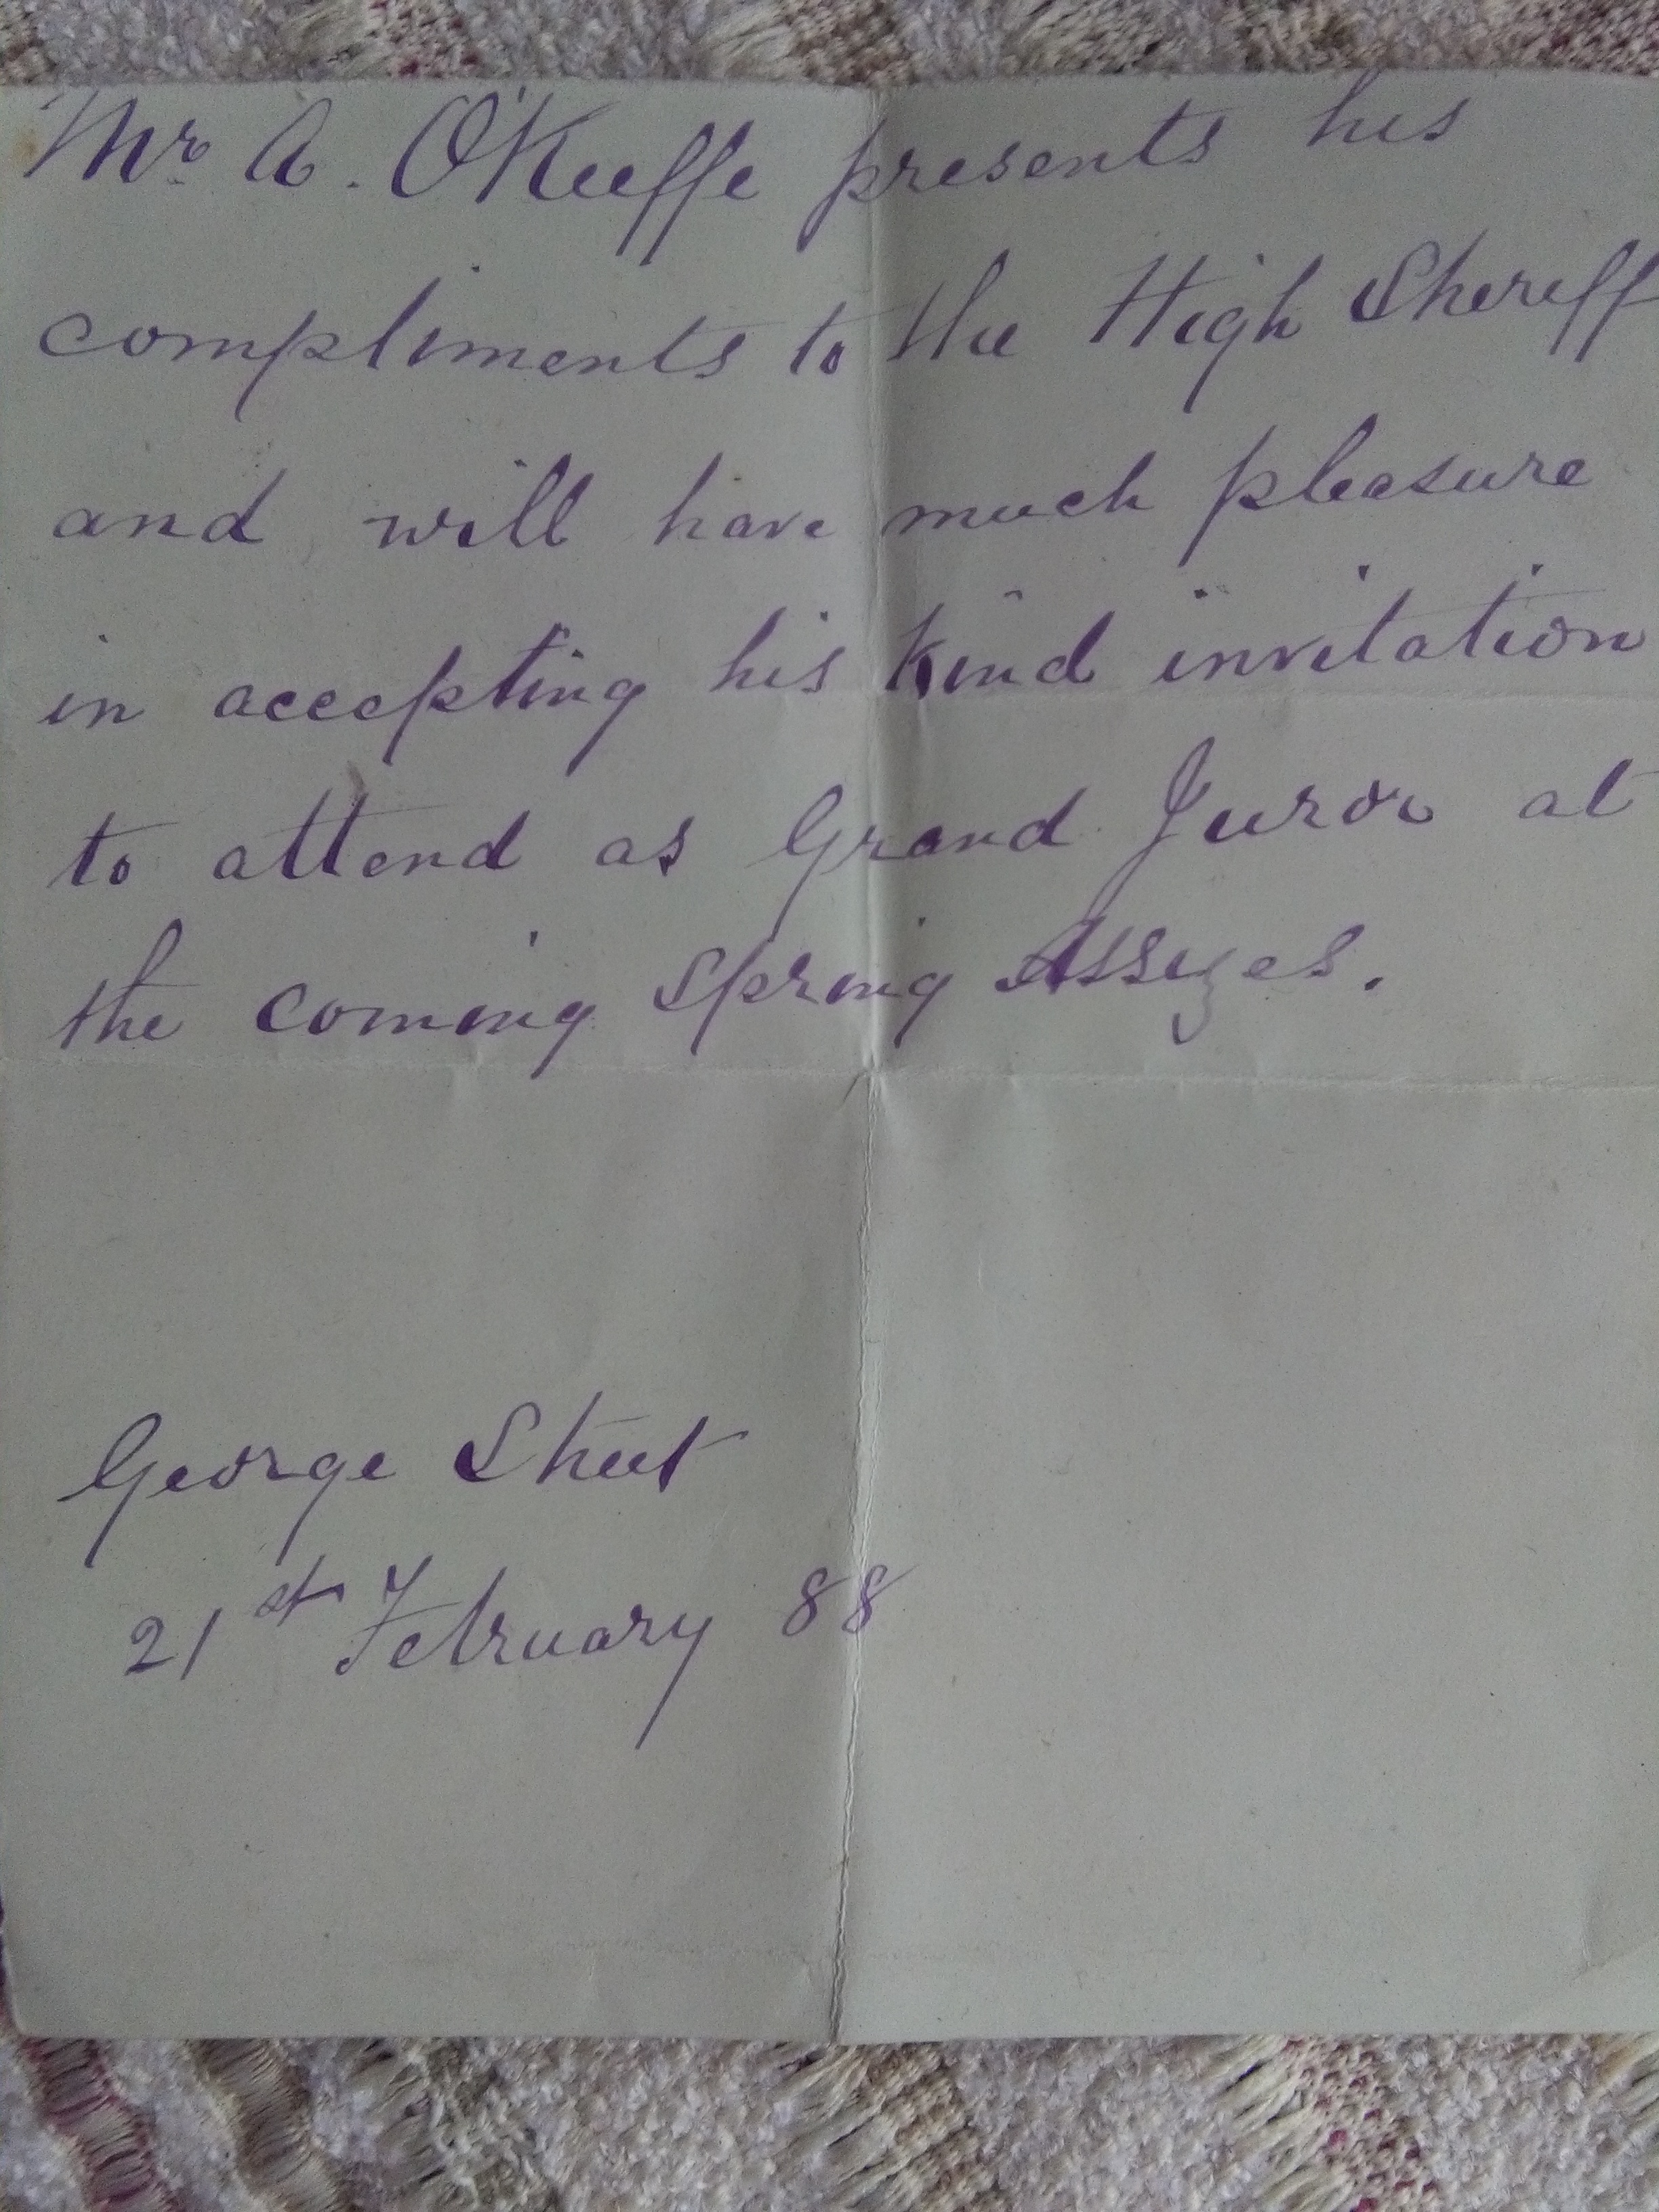 Mr. A. O'Keeffe presents his
compliments to the High Sheriff
and will have much pleasure
in accepting his kind invitation
to attend as Grand Juror at
the coming Spring Assizes.
George Street
21st February 88